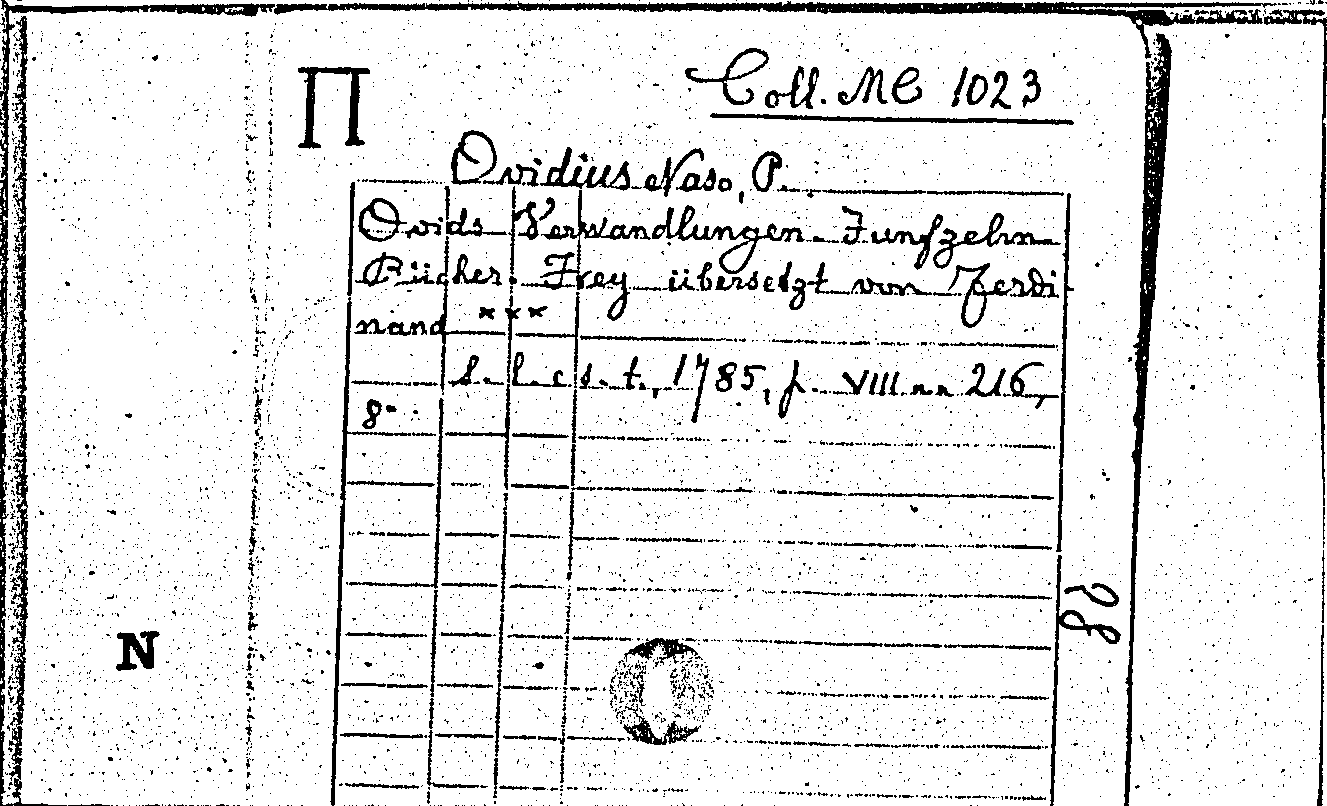 П
Coll. MC 1023
Ovidius Naso, P.
Ovids Verwandlungen. Funfzehn
Bücher. Frey übersetzt von Ferdi
nand ***
s. l. e s. t., 1785, p. VIII nn 216,
8-
28
N